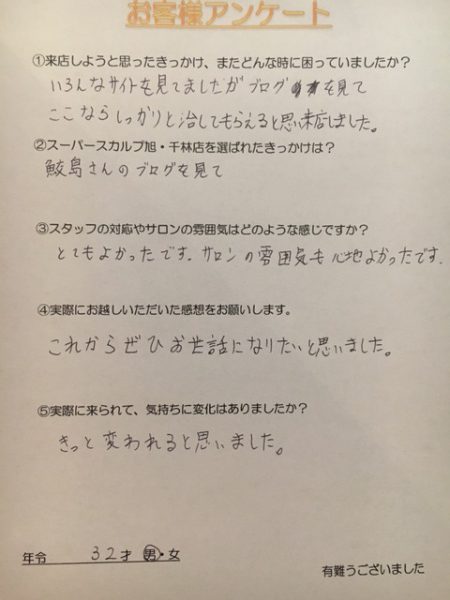 お客様アンケート
①来店しようと思ったきっかけ、またどんな時に困っていましたか？
いろんなサイトを見てましたがブログを見て
ここならしっかりと治してもらえると思い来店しました。
②スーパースカルプ旭・千林店を選ばれたきっかけは？
鮫島さんのブログを見て
③スタッフの対応やサロンの雰囲気はどのような感じですか？
とてもよかったです。サロンの雰囲気も心地よかったです。
④実際にお越しいただいた感想をお願いします。
これからぜひお世話になりたいと思いました。
⑤実際に来られて、気持ちに変化はありましたか？
きっと変われると思いました。
年令 32才 男・女
有難うございました